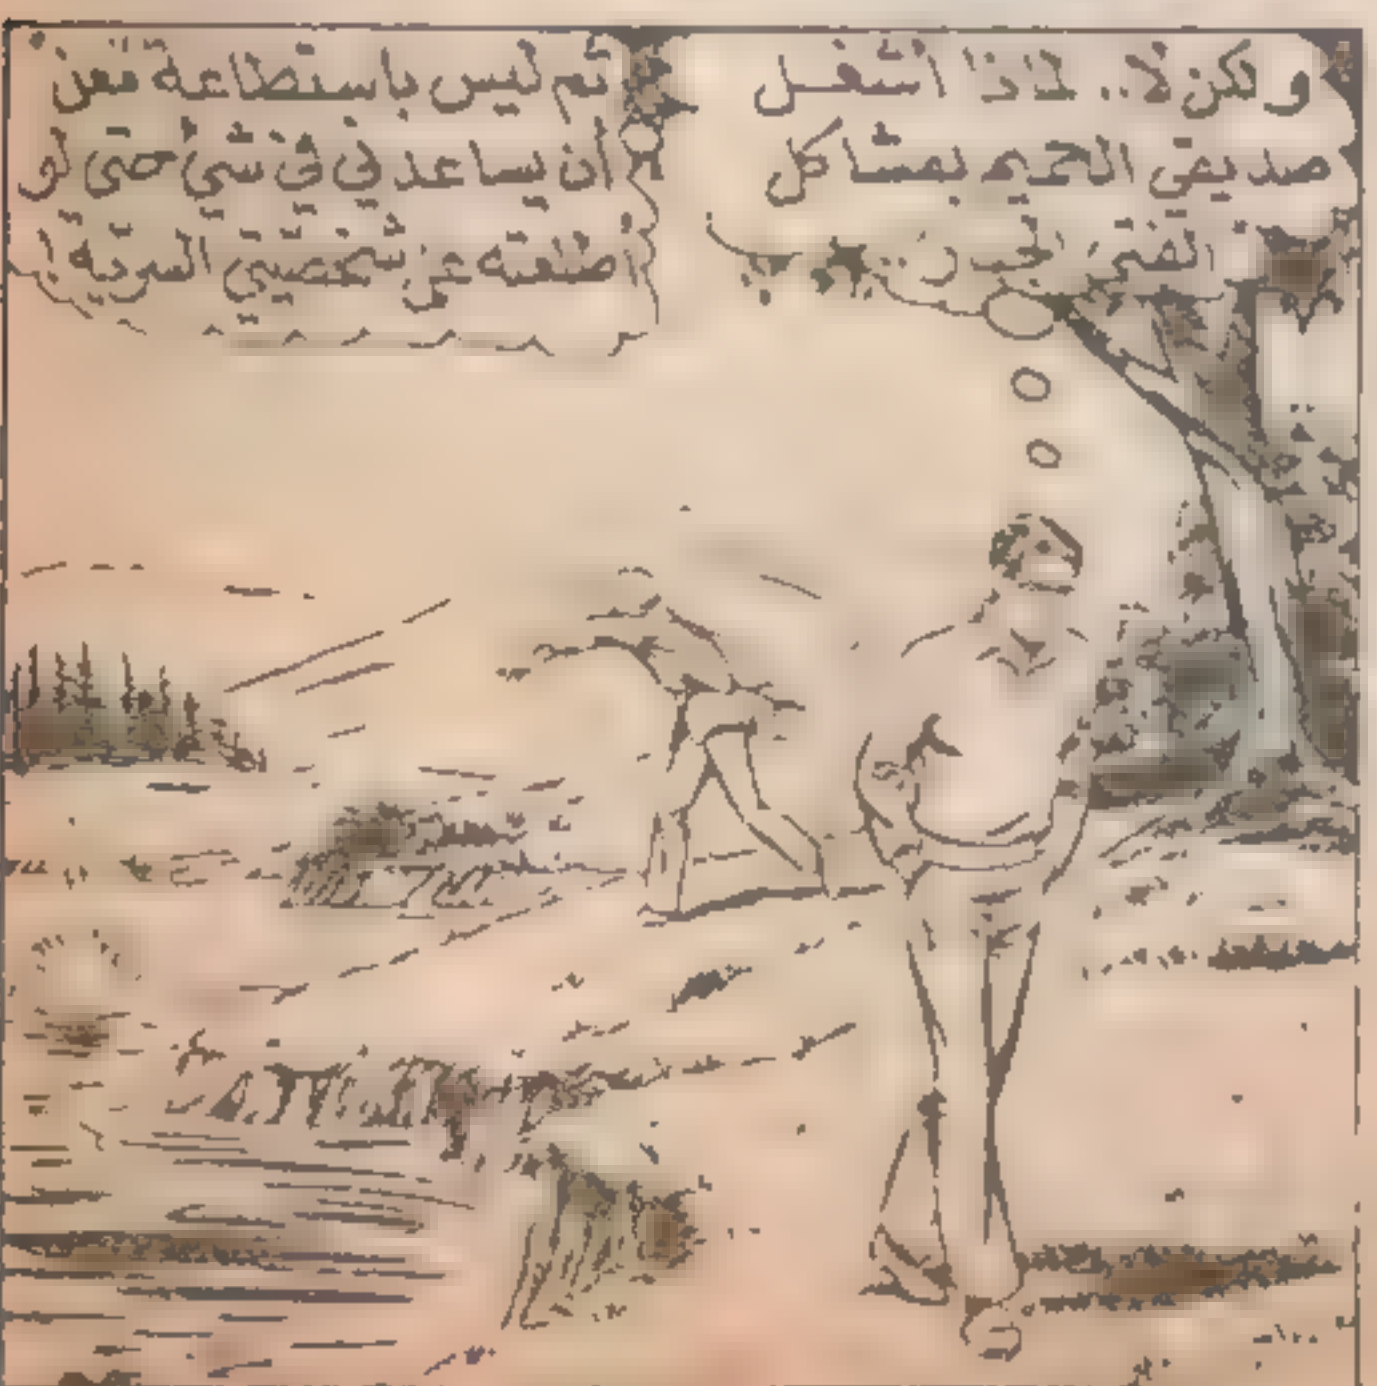 ولكن لا.. لماذا أشغل
صديقي الحميم بمشاكل
الفتى الجبار..
ثم ليس باستطاعة معن
أن يساعدني في شيء حتى لو
أطلعته عن شخصيتي السرية!